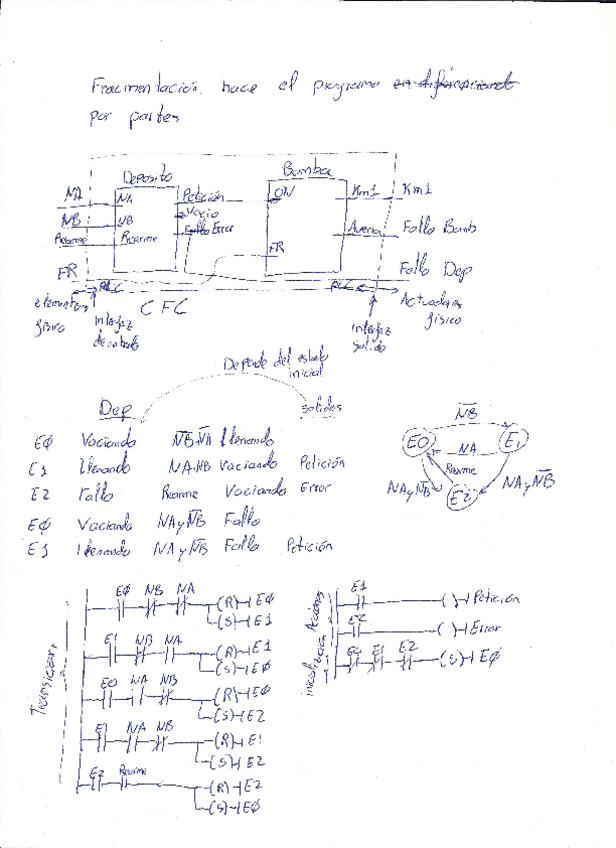 Fracmentación. hace el programa en diferenciando
por partes
Deposito Bomba
NA NA Petición ON Km1 Km1
NB NB Vacio
Rearme Rearme Fallo Error Averia Fallo Bomb
FR FR Fallo Dep
PLC PLC
elementos fisico Interfaz de entrada CFC Interfaz salida Actuadores fisico
Depende del estado
inicial
Dep salidas
EØ Vaciando N̅B̅·N̅A̅ llenando
E1 llenando NA·NB Vaciando Petición
E2 Fallo Rearme Vaciando Error
EØ Vaciando NA y N̅B̅ Fallo
E1 llenando NA y N̅B̅ Fallo Petición
N̅B̅
EO NA E1
Rearme
NA y N̅B̅ E2 NA y N̅B̅
Transiciones
EØ NB NA (R) EØ
(S) E1
E1 NB NA (R) E1
(S) EØ
EO NA NB (R) EØ
(S) E2
E1 NA NB (R) E1
(S) E2
E2 Rearme (R) E2
(S) EØ
Acciones
E1 ( ) Petición
E2 ( ) Error
EO E1 E2 (S) EØ